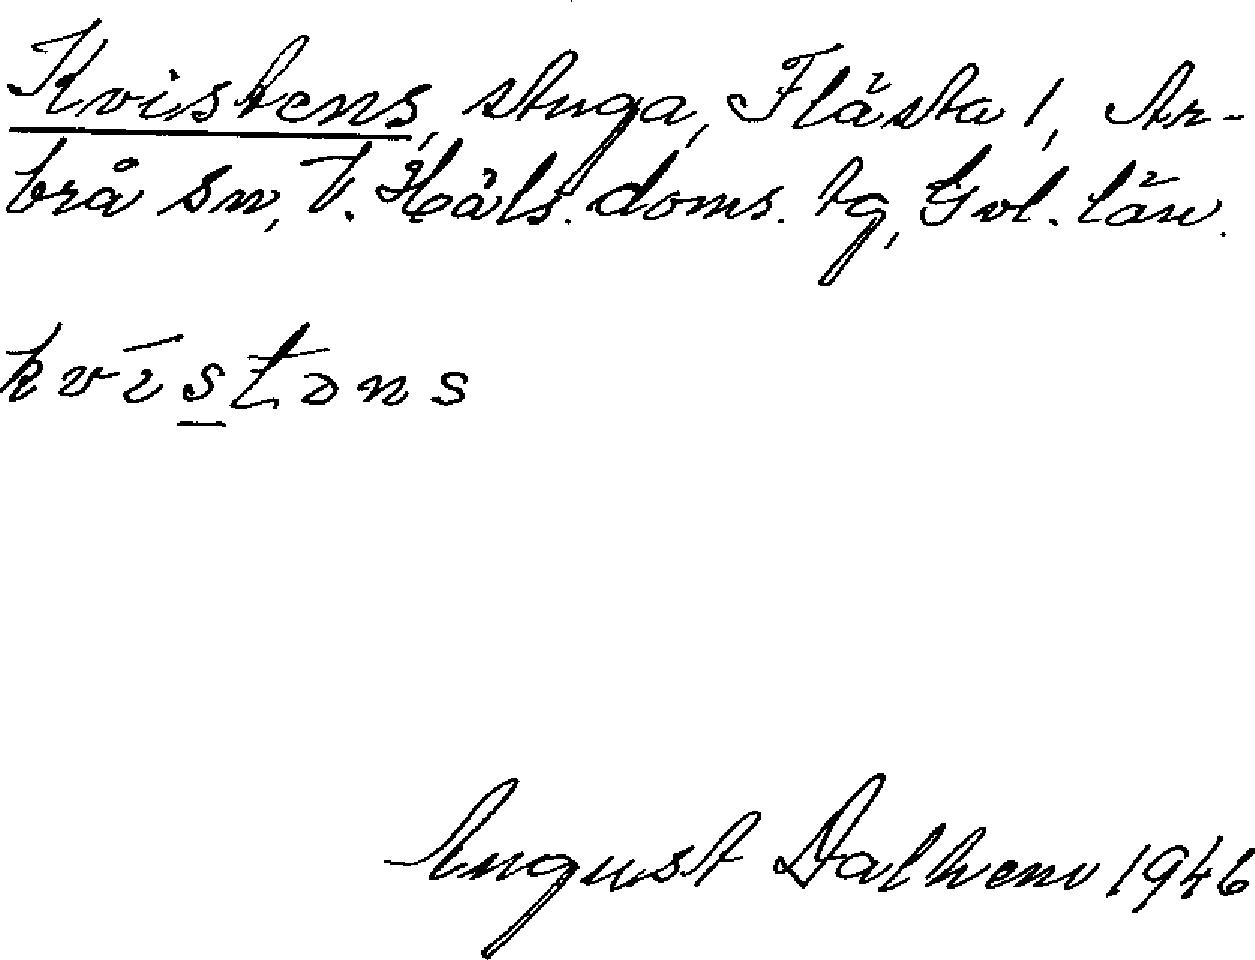 Kvistens, stuga, Flästa 1, Ar-
brå sn, V. Häls. doms. tg, Gvl. län.
kvistəns
August Dalhem 1946